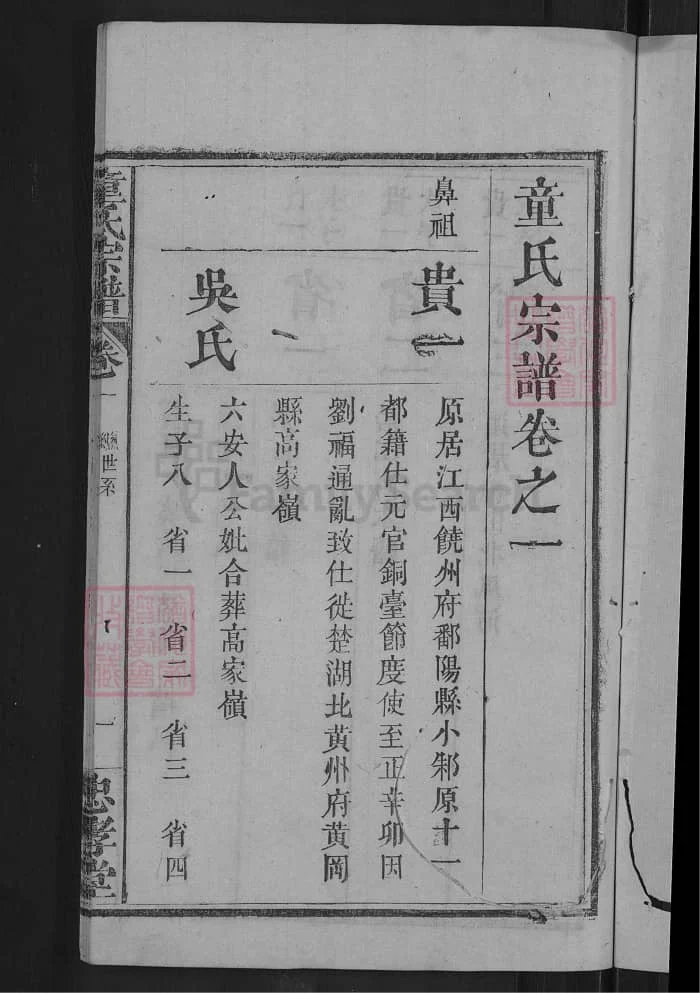 童氏宗譜卷之一
鼻祖
貴一
原居江西饒州府鄱陽縣小邾原十一
都籍仕元官銅臺節度使至正辛卯因
劉福通亂致仕徙楚湖北黃州府黃岡
縣高家嶺
吳氏
六安人公妣合葬高家嶺
生子八 省一 省二 省三 省四
童氏宗譜 卷一 世系 一 忠孝堂
FamilySearch